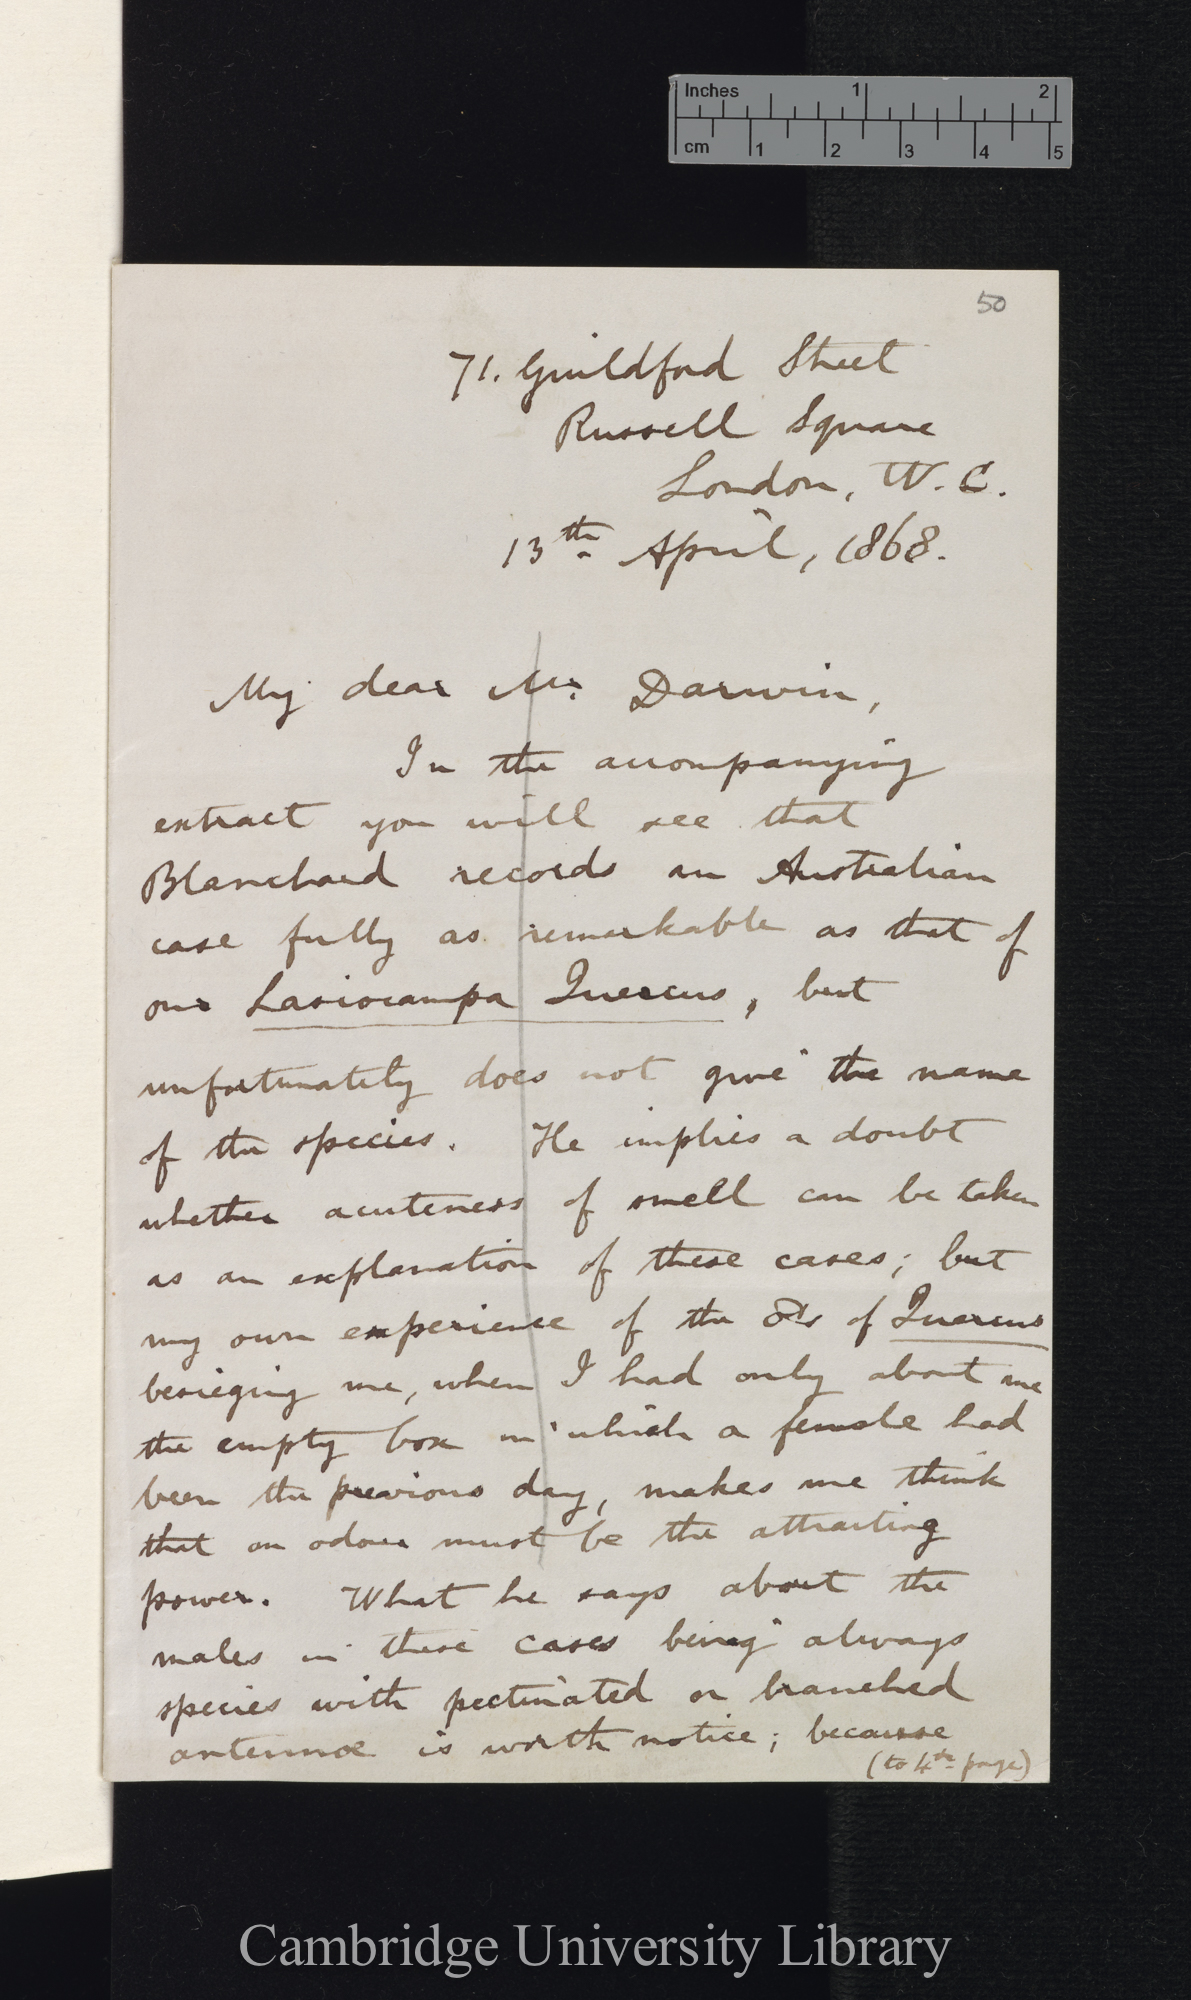 Inches 1 2
cm 1 2 3 4 5
50
71. Guildford Street
Russell Square
London, W. C.
13th April, 1868.
My dear Mr. Darwin,
In the accompanying
extract you will see that
Blanchard records an Australian
case fully as remarkable as that of
our Lasiocampa Quercus, but
unfortunately does not give the name
of the species. He implies a doubt
whether acuteness of smell can be taken
as an explanation of these cases; but
my own experience of the ♂s of Quercus
besieging me, when I had only about me
the empty box in which a female had
been the previous day, makes me think
that an odour must be the attracting
power. What he says about the
males in these cases being always
species with pectinated or branched
antennæ is worth notice; because
(to 4th page)
Cambridge University Library